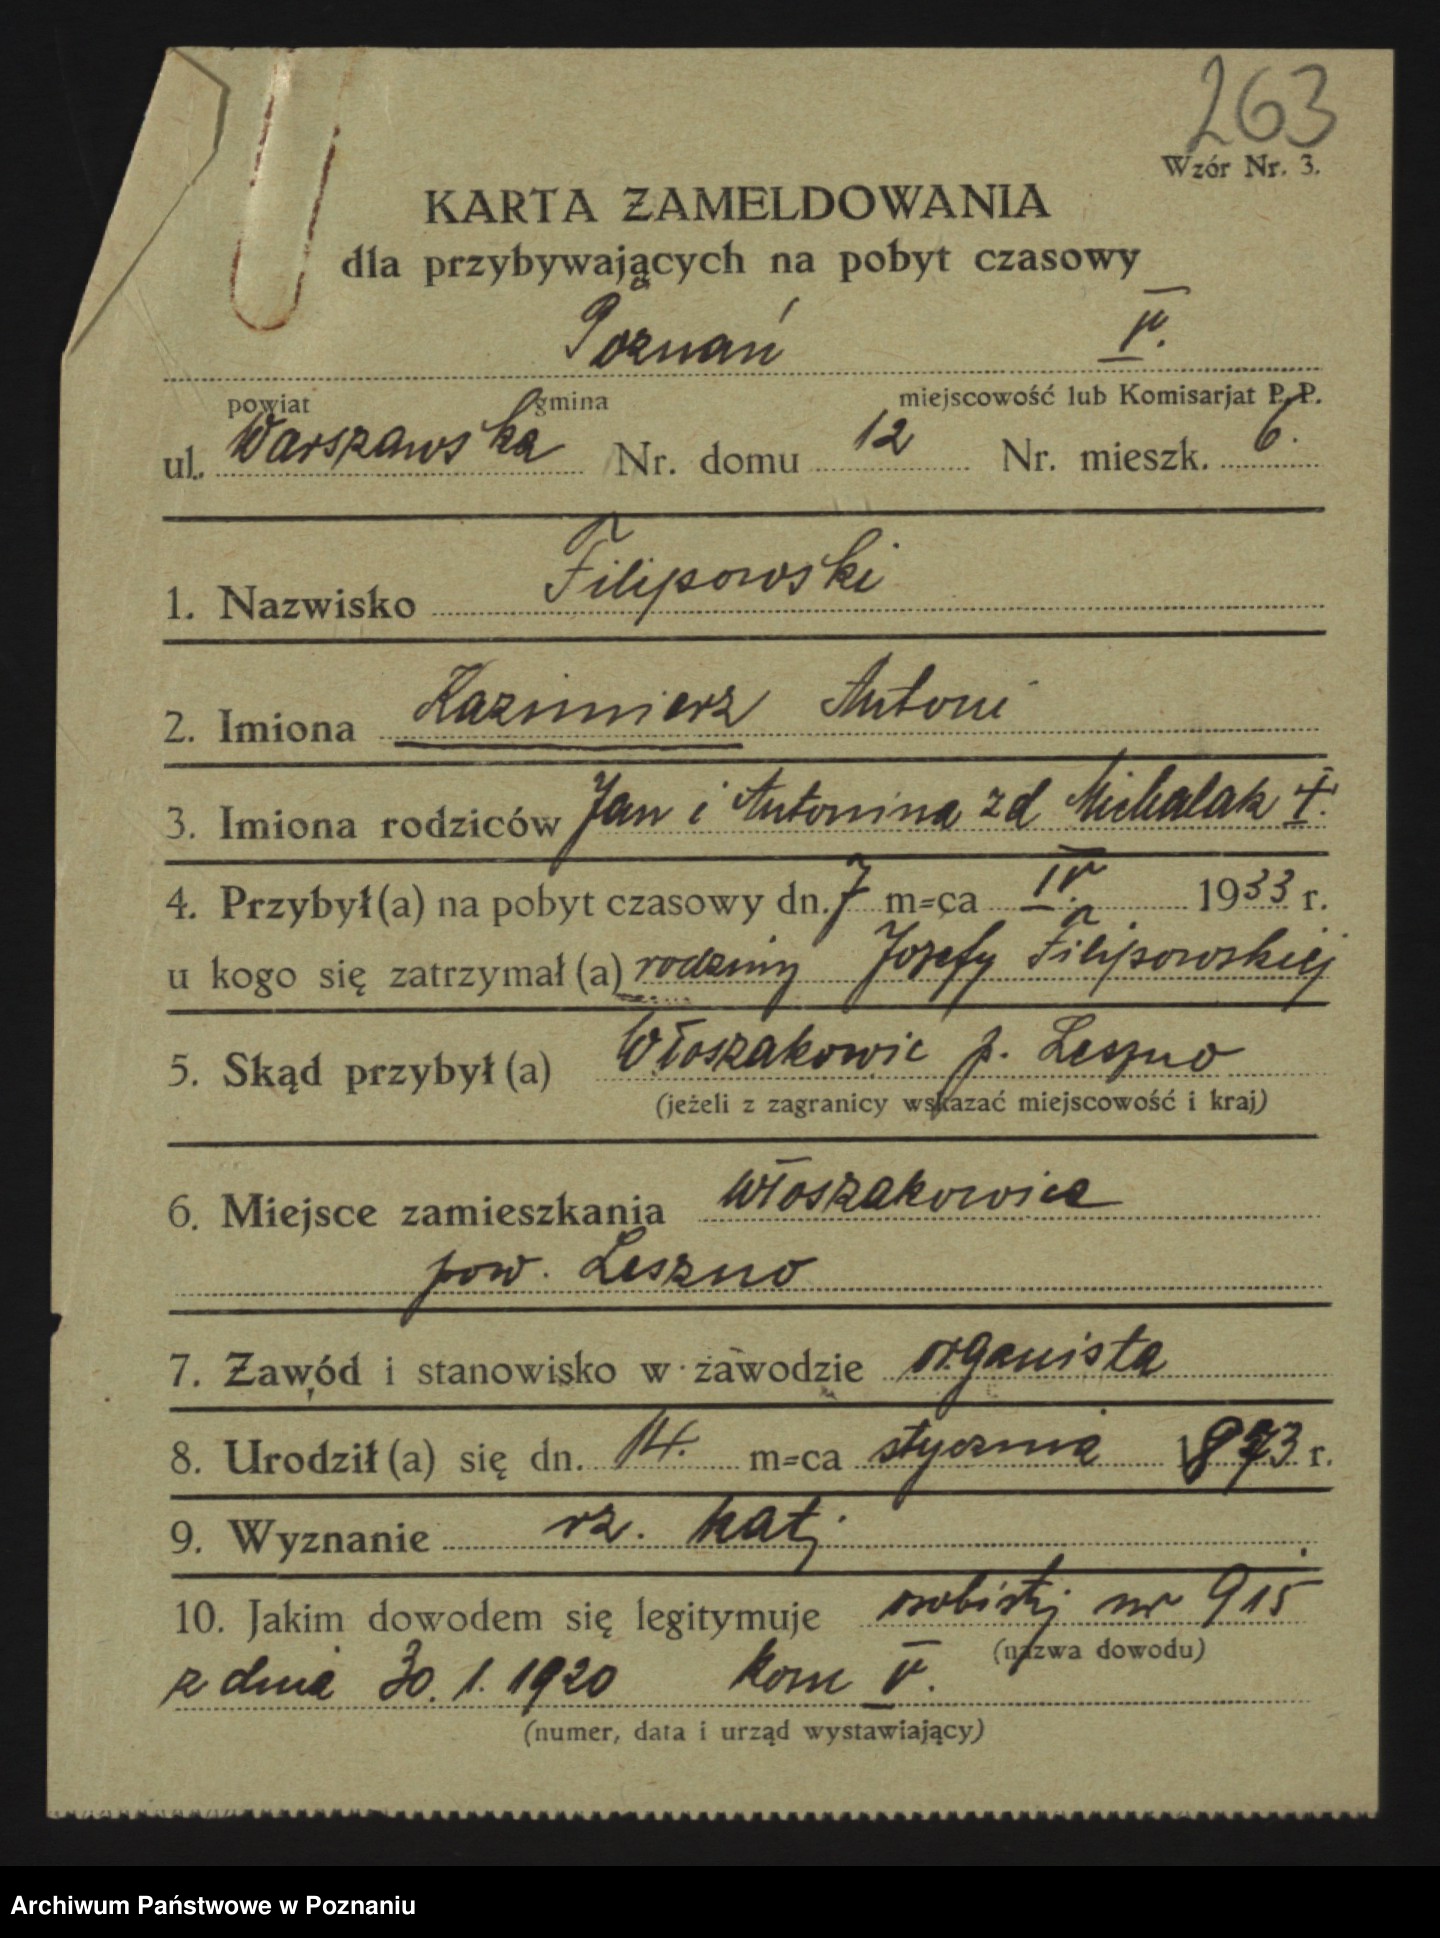 263
Wzór Nr. 3.
KARTA ZAMELDOWANIA
dla przybywających na pobyt czasowy
Poznań V.
powiat gmina miejscowość lub Komisarjat P. P.
ul. Warszawska Nr. domu 12 Nr. mieszk. 6.
1. Nazwisko Filipowski
2. Imiona Kazimierz Antoni
3. Imiona rodziców Jan i Antonina z d Michalak
4. Przybył(a) na pobyt czasowy dn. 7 m=ca IV. 1933 r.
u kogo się zatrzymał(a) rodziny Józefy Filipowskiej
5. Skąd przybył(a) Włoszakowic p. Leszno
(jeżeli z zagranicy wskazać miejscowość i kraj)
6. Miejsce zamieszkania Włoszakowice
pow. Leszno
7. Zawód i stanowisko w zawodzie organista
8. Urodził(a) się dn. 14. m=ca stycznia 1873 r.
9. Wyznanie rz. kat.
10. Jakim dowodem się legitymuje osobistyj nr 915
(nazwa dowodu)
z dnia 30. 1. 1920 kom V.
(numer, data i urząd wystawiający)
Archiwum Państwowe w Poznaniu